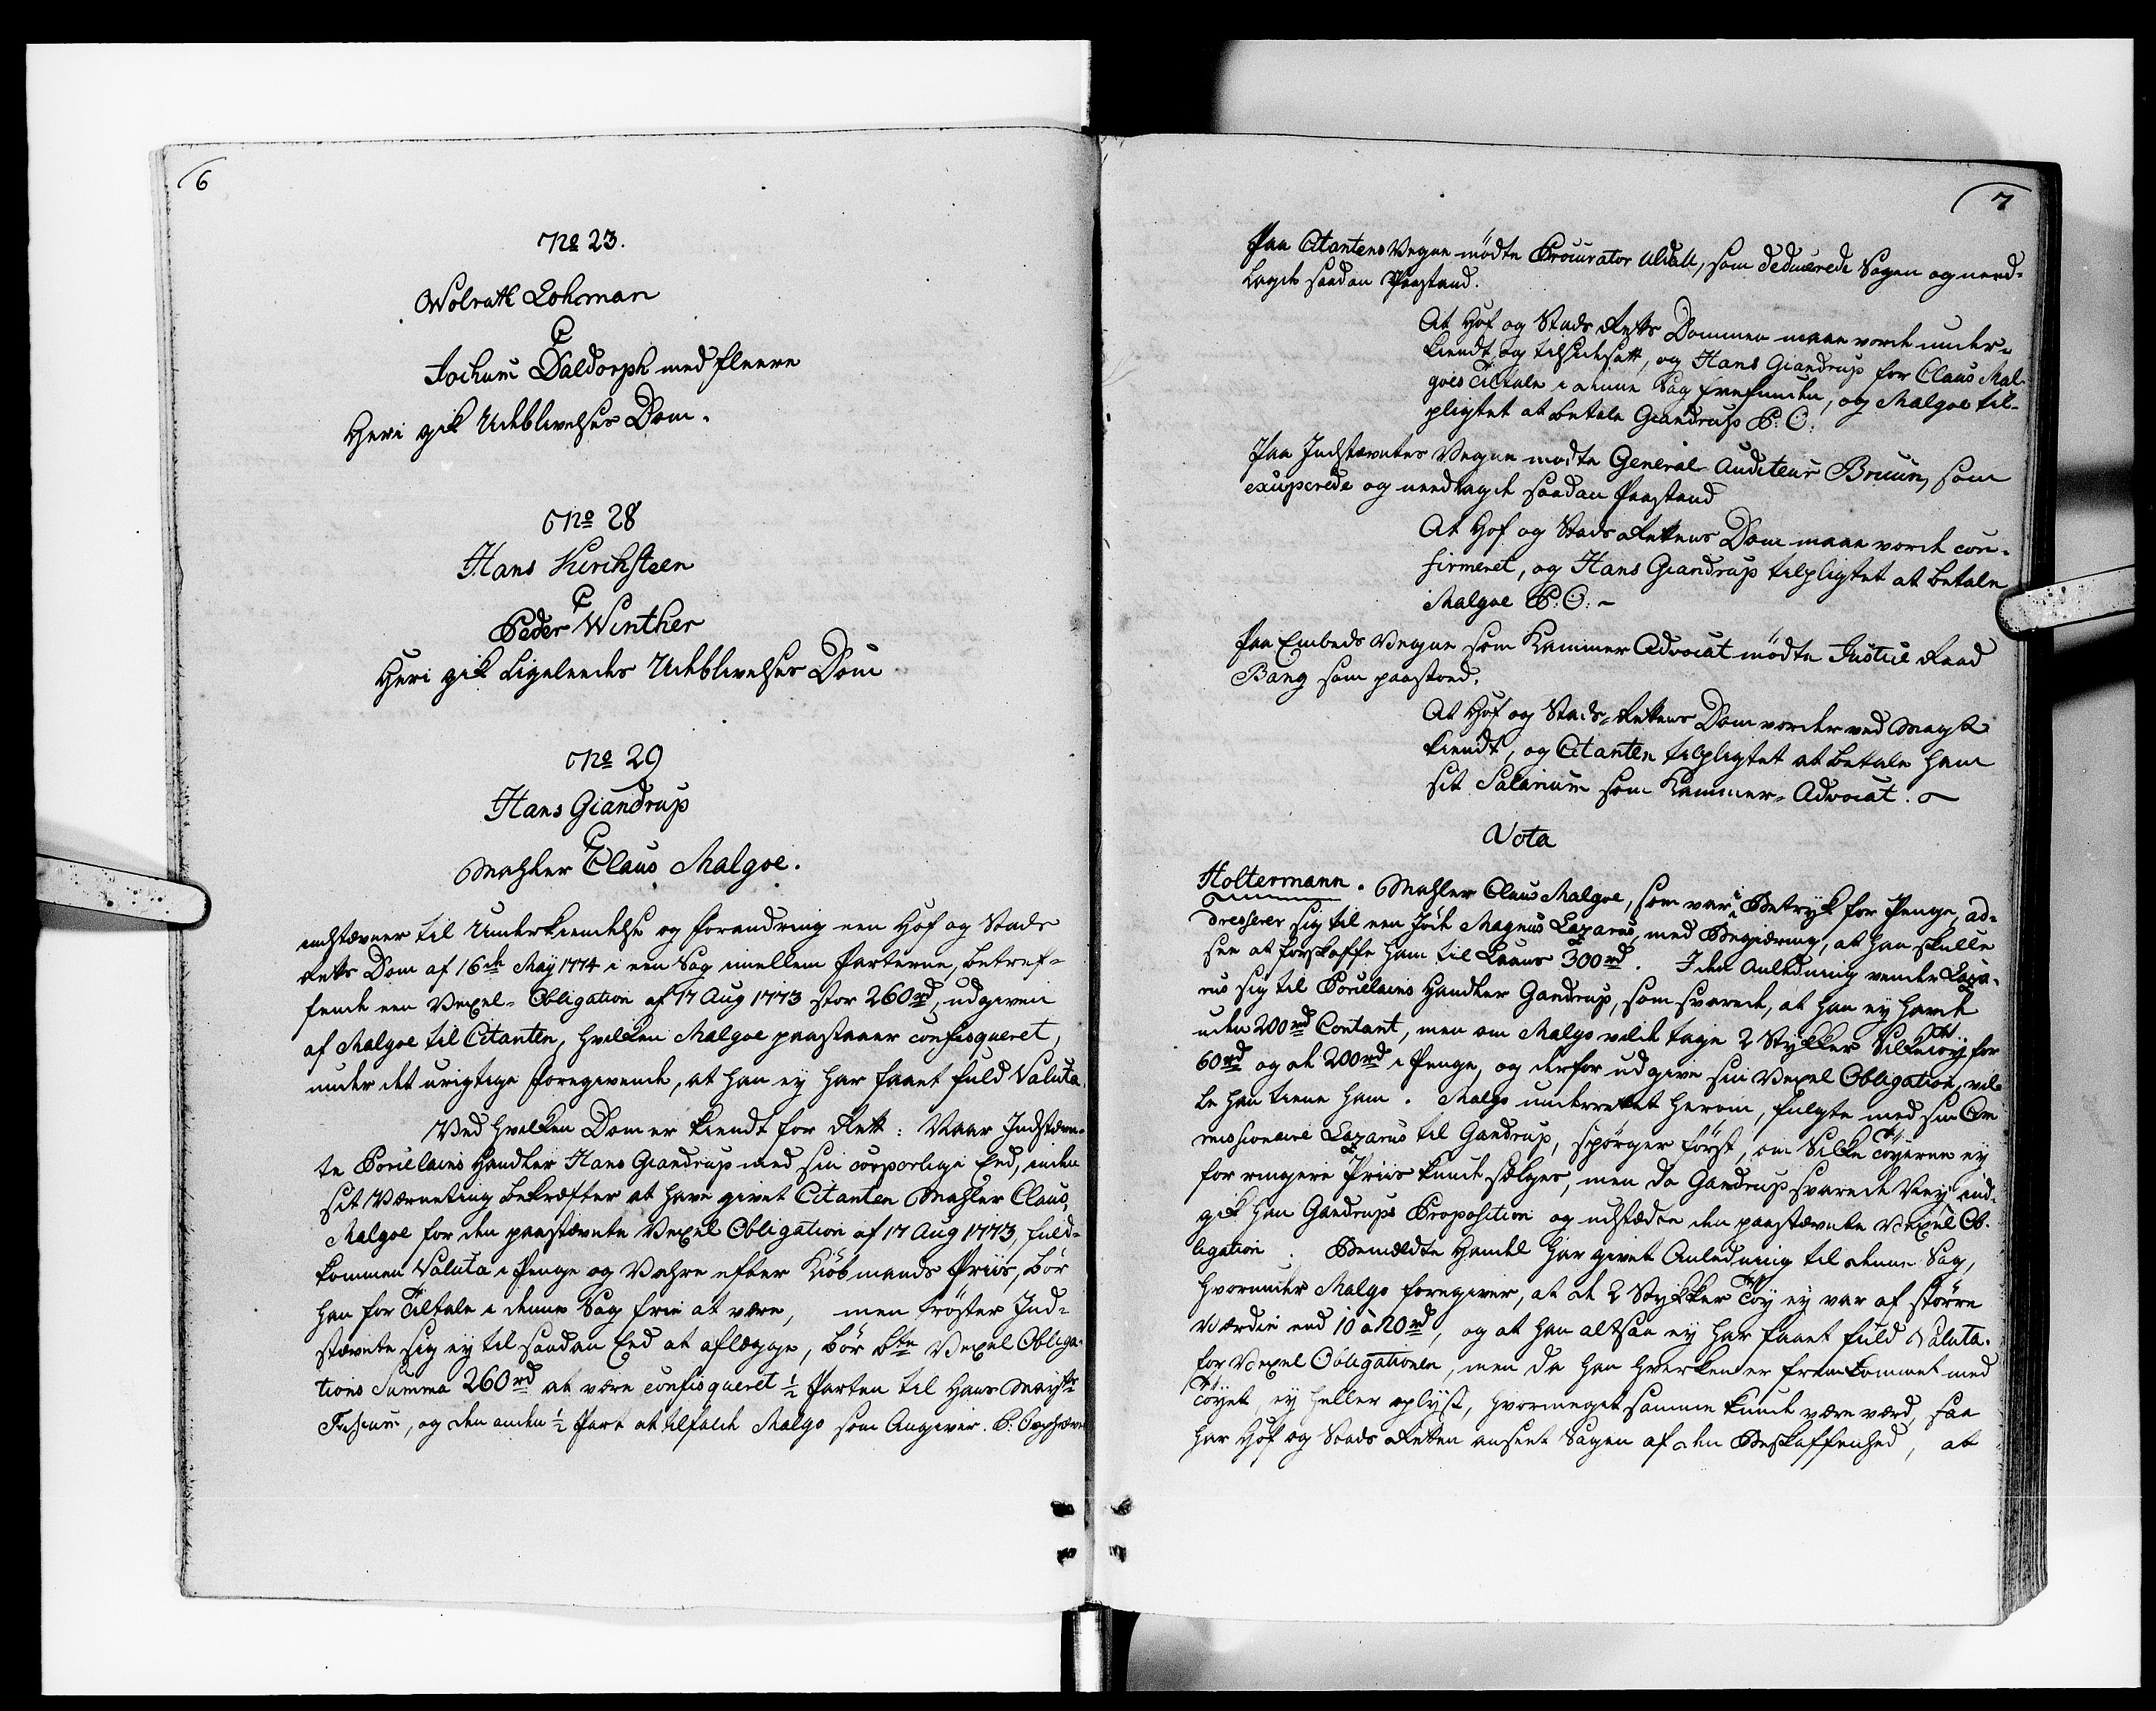 6
No 23.
Wolrath Lohman
C
Jochum Daldorph med fleere
Heri gik Udeblivelses Dom.
No 28
Hans Kirchsteen
C
Peder Winther
Heri gik ligeleedes Udeblivelses Dom
No 29
Hans Giandrup
C
Mahler Claus Malgoe.
indstævner til Underkiendelse og forandring een Hof og Stads
Retts Dom af 16de Maÿ 1774 i een Sag imellem Parterne, betref-
fende een Vexel-Obligation af 17 Aug 1773 stor 260 rd, udgiven
af Malgoe til Citanten, hvilken Malgoe paastaaer confisqueret,
under det urigtige foregivende, at han ey har faaet fuld Valuta.
Ved hvilken Dom er kiendt for Rett: Naar Indstævn-
te Porcelains Handler Hans Giandrup med sin corporlige Eed, inden
sit Værneting bekræfter at have givet Citanten Mahler Claus
Malgoe for den paastævnte Vexel Obligation af 17 Aug 1773, fuld-
kommen Valuta i Penge og Vahre efter Kiöbmands Priis, bör
han for Tiltale i denne Sag frie at være, men tröster Ind-
stævnte sig ey til saadan Eed at aflægge, bör bte Vexel Obliga-
tions Summa 260 rd at være confisqueret ½ Parten til Hans Mayts
Fiscum, og den anden ½ Part at tilfalde Malgo som Angiver. P: Ophæve
7
Paa Citantens Vegne mödte Procurator Uldall, som deducerede Sagen og need-
lagde saadan Paastand.
At Hof og Stads Retts Dommen maae vorde under-
kiendt og tilsidesatt, og Hans Giandrup for Claus Mal-
goes Tiltale i denne Sag friefunden, og Malgoe til-
pligtet at betale Giandrup P. O.
Paa Indstævntes Vegne mödte General Auditeur Bruun, som
exciperede og needlagde saadan Paastand
At Hof og Stads Rettens Dom maae vorde con-
firmeret, og Hans Giandrup tilpligtet at betale
Malgoe P. O:
Paa Embeds Vegne som Kammer Advocat mödte Justice Raad
Bang som paastoed.
At Hof og Stads-Rettens Dom vorder ved Magt
kiendt, og Citanten tilpligtet at betale ham
sit Salarium som Kammer-Advocat.
Vota
Holtermann. Mahler Claus Malgoe, som var i Betryk for Penge, ad-
dresserer sig til een Jöde Magnus Lazarus, med Begiæring, at han skulle
see at forskaffe ham til Laans 300 rd. I den Anledning vender Laza-
rus sig til Porcelains Handler Gandrup, som svarede, at han ey havde
uden 200 rd Contant, men om Malgo vilde tage 2 Stykker Silketöy for
60 rd og de 200 rd i Penge, og derfor udgive sin Vexel Obligation, vil-
le han tiene ham. Malgo underrettet herom, fulgte med sin Com
missionaire Lazarus til Gandrup, spörger först, om Silke töyerne ey
for ringere Priis kunde sælges, men da Gandrup svarede Ney, ind-
gik han Gandrups Proposition og udstædte den paastævnte Vexel Ob-
ligation. Bemældte Handel har givet Anledning til denne Sag,
hvorunder Malgo foregiver, at de 2 Stykker Töy ey var af större
Værdie end 10 à 20 rd, og at han altsaa ey har faaet fuld Valuta
for Vexel Obligationen, men da han hverken er fremkommet med
Töyet, ey heller oplyst, hvormeget samme kunde være værd, saa
har Hof og Stads Retten anseet Sagen af den Beskaffenhed, at